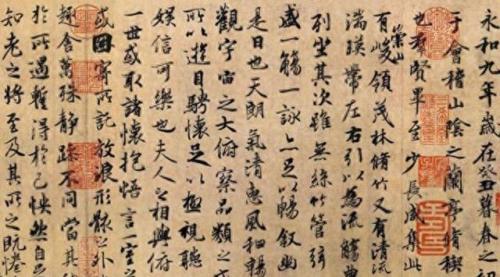 永和九年歲在癸丑暮春之
于會稽山陰之蘭亭脩稧
也羣賢畢至少長咸集此
崇山
有峻領茂林脩竹又有清流
湍暎帶左右引以為流觴
列坐其次雖無絲竹管弦
盛一觴一詠亦足以暢叙幽
是日也天朗氣清惠風和暢
觀宇宙之大俯察品類之
所以遊目騁懷足以極視聽
娛信可樂也夫人之相與俯
一世或取諸懷抱悟言一室之
或因寄所託放浪形骸之外
趣舍萬殊靜躁不同當其
於所遇蹔得於己怏然自
知老之將至及其所之既惓